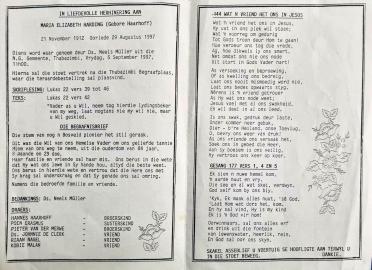 IN LIEFDEVOLLE HERINNERING AAN
MARIA ELIZABETH HARDING (Gebore Haarhoff)
21 November 1912   Oorlede 29 Augustus 1997
Diens word waar geneem deur Ds. Neels Müller uit die
N.G. Gemeente, Thabazimbi, Vrydag, 5 September 1997,
11h00.
Hierna sal die stoet vertrek na die Thabazimbi Begraafplaas,
waar die teraardebestelling sal plaasvind.
SKRIFLESING: Lukas 22 vers 39 tot 46
TEKS: Lukas 22 vers 42
"Vader as U wil, neem tog hierdie lydingsbeker
van my weg, laat nogtans nie my wil nie, maar
u Wil geskied.
DIE BEGRAFNISBRIEF
Die stem van nog 'n Bosveld pionier het stil geraak.
Dit was die Wil van Hemelse Vader om ons geliefde tannie
Myem van ons weg te neem, uit die ouderdom van 84 jaar,
9 maande en 29 dae.
Haar familie en vriende sal haar mis. Ons berus in die wete
Namens die bedroefde familie en vriende.
BEDANKINGS: Ds. Neels Müller
DRAERS:
HANNES HAARHOFF - BROERSKIND
POEN ERASMUS - SUSTERSKIND
PIETER VAN DER MERWE - BROERSKIND
DS. JOHNNIE DE CLERK - VRIEND
RIAAN NAGEL - VRIEND
KOBIE MALAN - VRIEND
WAT 'N VRIEND HET ONS IN JESUS
Wat 'n vriend het ons in Jesus,
Hy wat in ons plek wil staan;
Wat 'n voorreg om gedurig
Tot Gods troon deur Hom te gaan!
Hoe verbeur ons tog die vrede,
Ag, hoe dikwels ons gemoed,
Net omdat ons nie ons node
Uit stort in Gods Vader hart!
As versoeking en beproewing,
Of as kwelling ons bedreig,
Laat ons nooit mismoedig word nie,
Laat ons bedes opwaarts styg.
Nêrens is 'n vriend getrouer
As Hy wat ons node weet;
Jesus voel met al ons swakheid,
Is ons swak, gedruk deur laste,
Onder kommer neer gebuk,
Dier - b're Heiland, onse Toevlug,
As ons vriende ons versaak het,
Soek ons in gebed die Heer,
Aan Sy boesem is ons veilig,
Hy vertroos ons keer op keer.
GESANG 177 VERS 1, 4 EN 5
Ek sien 'n nuwe hemel kom,
'n aarde nuut en vry.
God self kom by ons bly.
"Kyk, Ek maak alles nuut," sê God.
Ek is 'n God vir hom!
Oorwinnaars, sal ons alles erf
en drink uit die fontein
van lewenswater, heerlik, rein,
En God sal oor ons skyn.
SKAKEL ASSEBLIEF U VOERTUIG SE HOOFLIGTE AAN TERWYL U
IN DIE STOET BEWEEG. DANKIE.